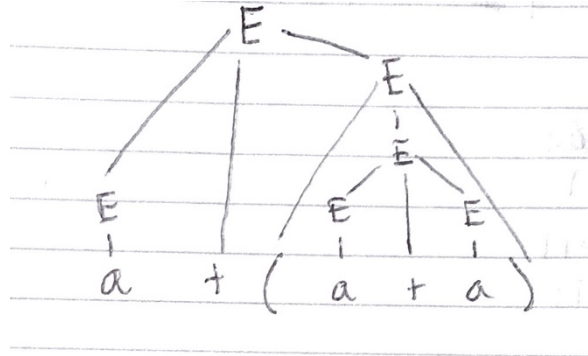 E
E
E
E E E
a + ( a + a )